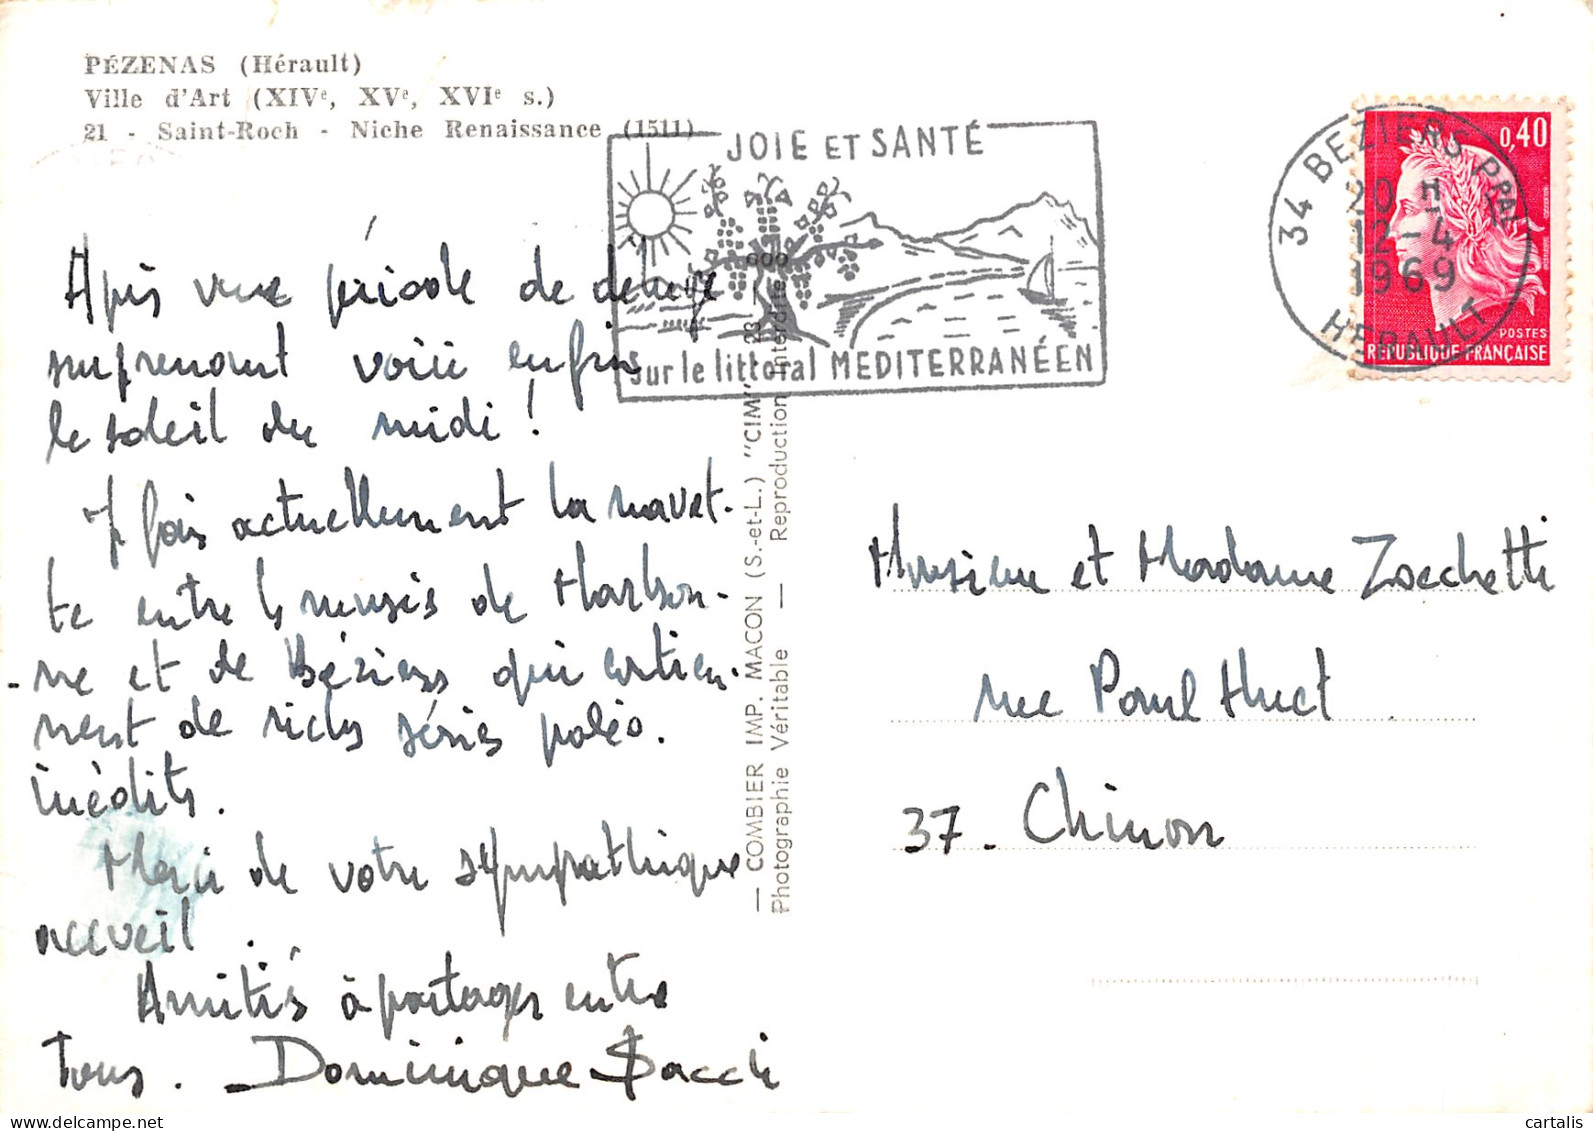 PÉZENAS (Hérault)
Ville d'Art (XIVe, XVe, XVIe s.)
21 - Saint-Roch - Niche Renaissance (1511)
JOIE ET SANTÉ
sur le littoral MEDITERRANÉEN
34 BEZIERS PPAL
20 H
12-4
1969
HERAULT
0,40
POSTES
REPUBLIQUE FRANÇAISE
Après une période de déluge
surprenant voici enfin
le soleil du midi !
J fais actuellement la navet-
te entre ls musées de Narbon-
ne et de Béziers qui contien-
nent de riches séries paléo.
inédits.
Merci de votre sympathique
accueil.
Amitiés à partager entre
tous. - Dominique Sacchi
— COMBIER IMP. MACON (S.-et-L.) "CIM"
Photographie Véritable — Reproduction Interdite
Monsieur et Madame Zocchetti
rue Paul Huet
37 - Chinon
cartalis.com